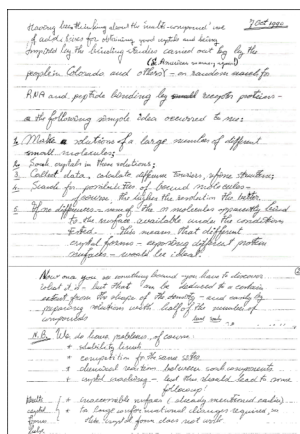 7 Oct 1990
Having been thinking about the "multi-compound" use
of antibodies for obtaining and being
inspired by the binding studies carried out by the
people in Colorado and others - on random search for
RNA and peptide binding by small receptor proteins -
the following simple idea occurred to me:
1. Make solutions of a large number of different
small molecules;
2. Soak crystals in these solutions;
3. Collect data, calculate difference Fouriers, refine structures;
4. Search for possibilities of bound molecules -
of course the higher the resolution the better.
5. If no differences - none of the n molecules apparently bind
to the surface available under the conditions
used. This means that different
crystal forms - exposing different protein
surfaces - would be ideal.
Now once you see something bound you have to discover
what it is - but that can be deduced to a certain
extent from the shape of the density - and easily by
preparing solutions with half of the number of
compounds
N.B. We do have problems, of course:
* solubility limits
* competition for the same sites
* chemical reaction between soak components
* crystal cracking - but this should lead to some
followup!
* inaccessible surface (already mentioned earlier)
crystal * too large conformational changes required, so
form the crystal form does not work